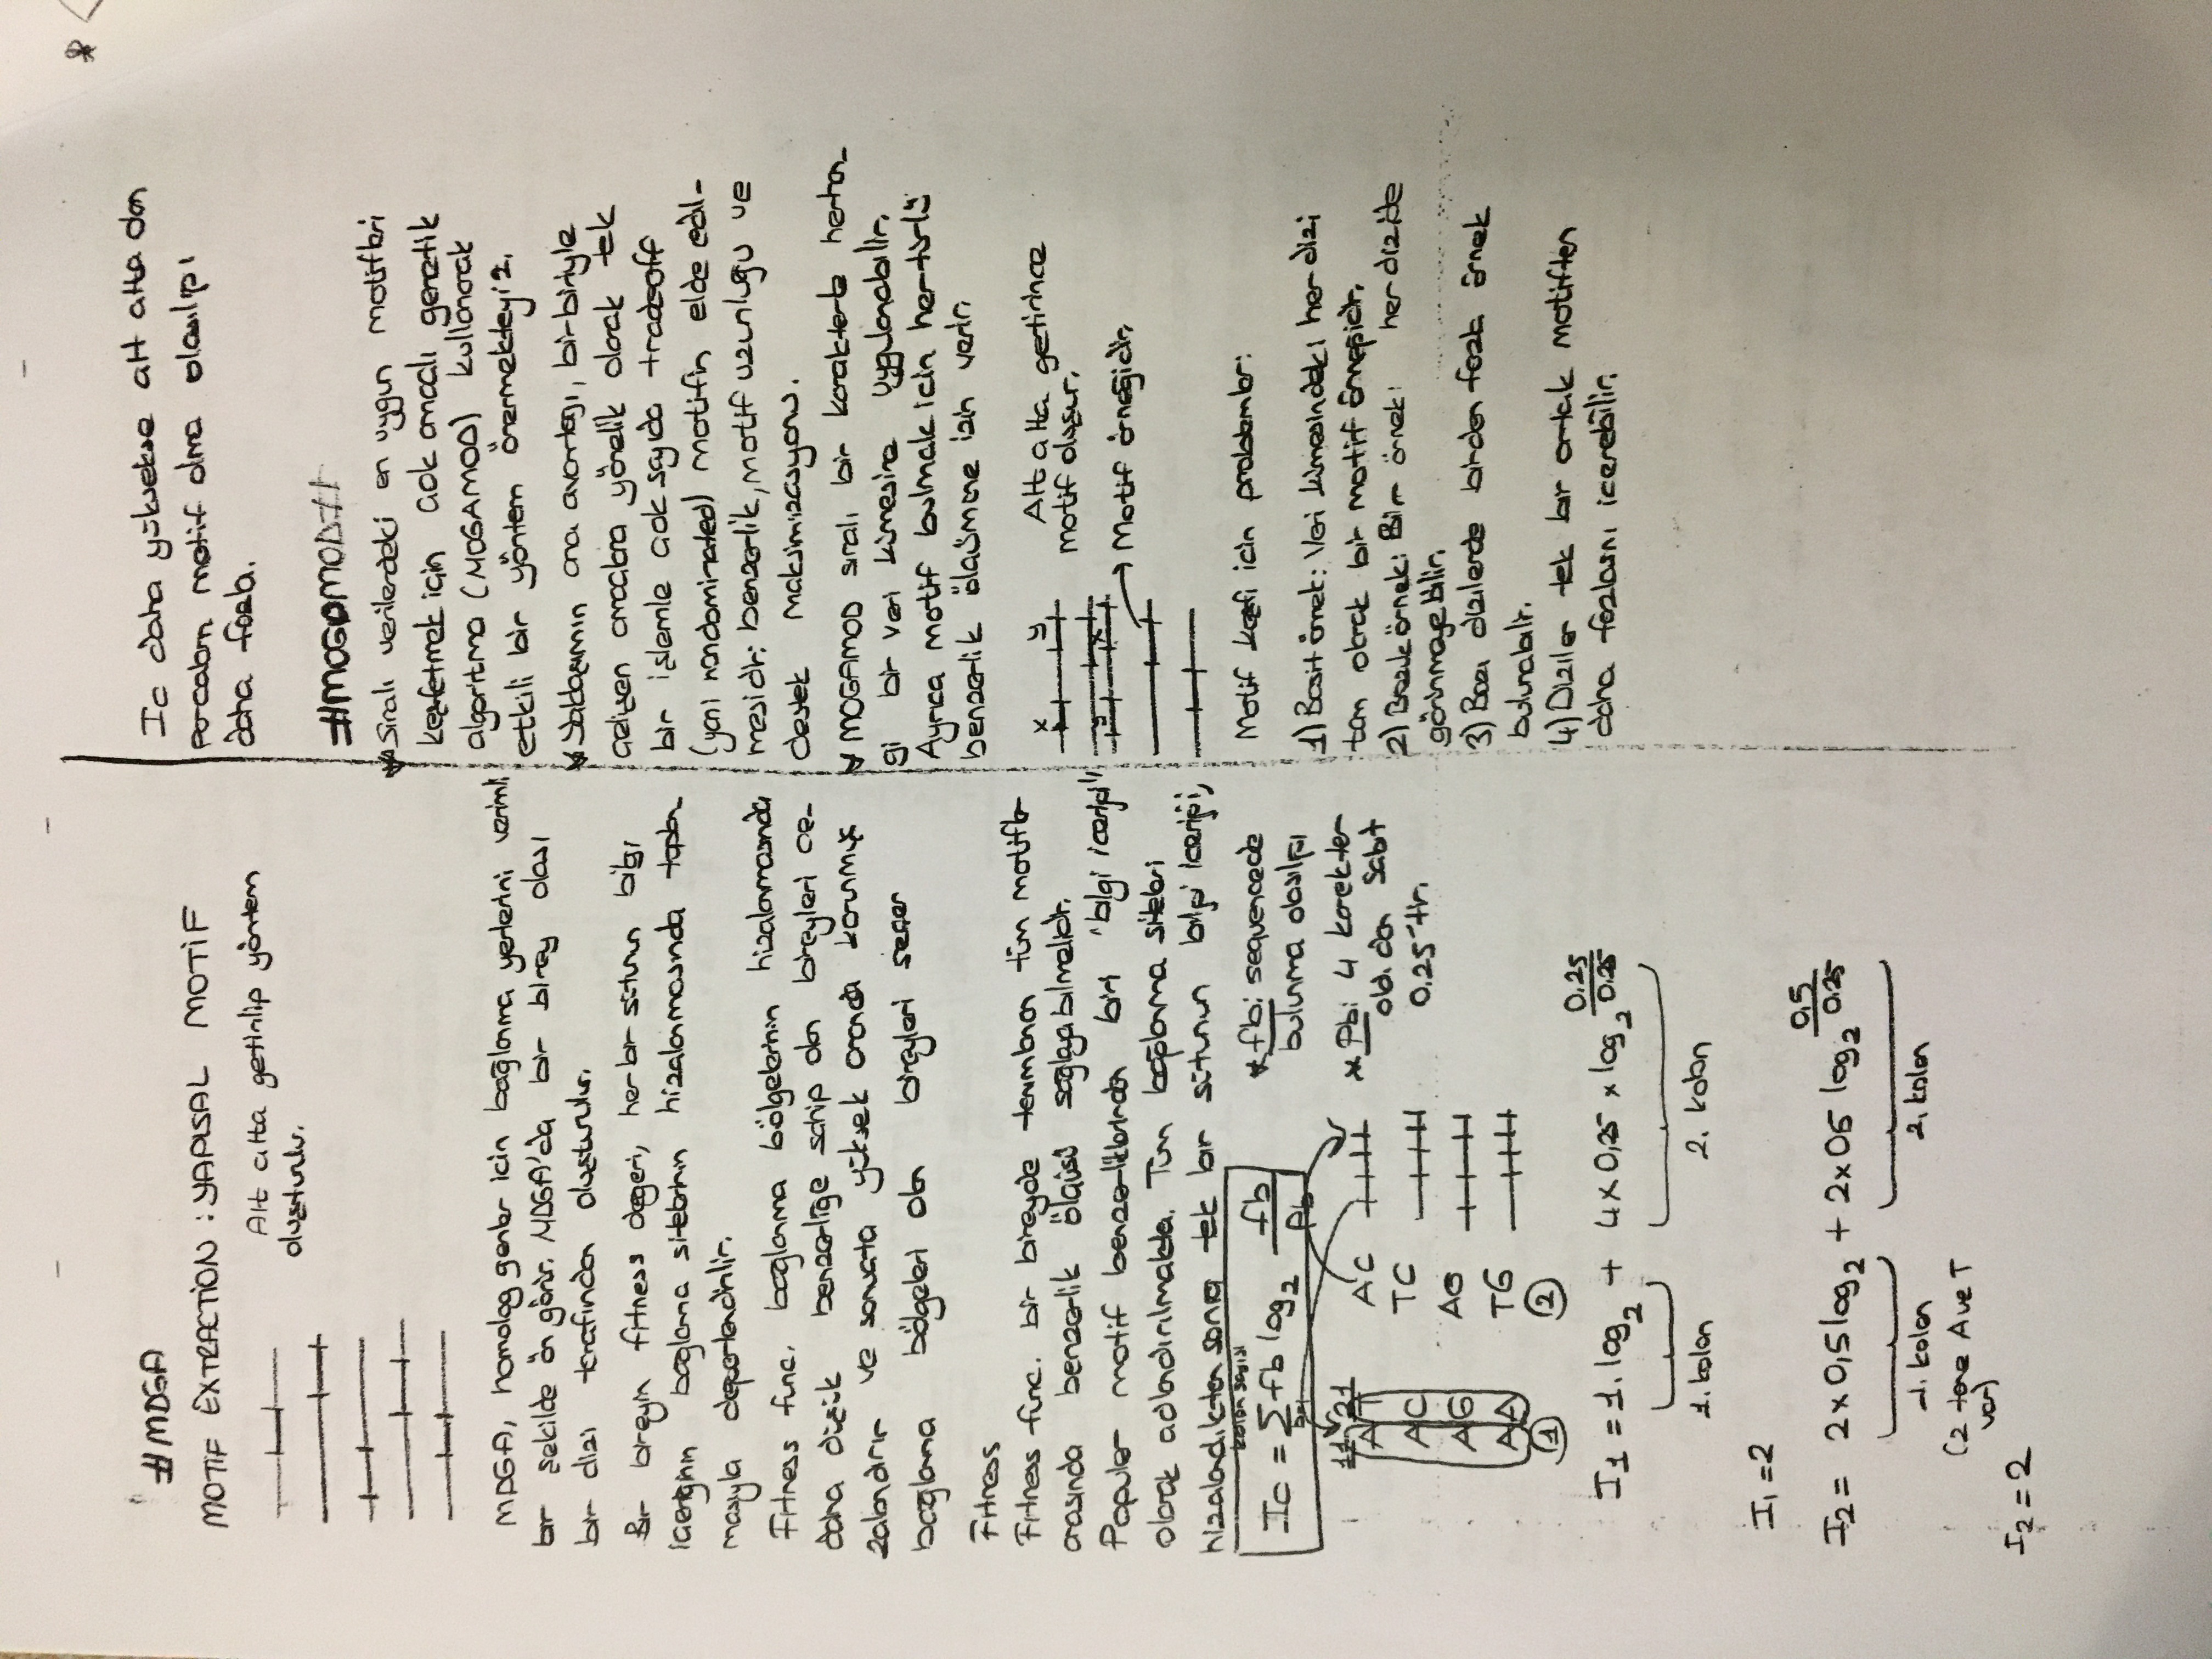 #MDGA
MOTIF EXTRACTION : YAPISAL MOTIF
Alt alta getirilip yöntem
oluşturulur.
MDGA, homolog genler icin bağlanma yerlerini verimli
bir şekilde ön görür. MDGA'da bir birey olası
bir dizi tarafından oluşturulur.
Bir bireyin fitness değeri, her bir sütunun bilgi
iceriğinin bağlama sitelerinin hizalanmasında toplan-
masıyla değerlendirilir.
Fitness func. bağlanma bölgelerinin hizalanmasında
daha düşük benzerliğe sahip olan bireyleri ce-
zalandırır ve sonuçta yüksek oranda korunmuş
bağlama bölgeleri olan bireyleri seçer
Fitness
Fitness func. bir bireyde tanımlanan tüm motifler
arasında benzerlik ölçüsü sağlayabilmelidir.
Populer motif benzerliklerinden biri "bilgi iceriği"
olarak adlandırılmakta. Tüm bağlanma siteleri
hizaladıktan sonra tek bir sütunun bilgi iceriği,
kolon sayısı
Ic = ∑ fb log2 fb / Pb
b=1
* fb: sequencede
bulunma olasılığı
* Pb: 4 karekter
old. dan sabit
0.25'tir.
11 21
A T AC
A C TC
A G AG
A A TG
1 2
I1 = 1. log2 + 4 x 0,25 x log2 0.25 / 0.25
1. kolon 2. kolon
I1 = 2
I2 = 2 x 0,5 log2 + 2x05 log2 0,5 / 0.25
1. kolon 2. kolon
(2 tane A ve T
var)
I2 = 2
Ic daha yüksekse alt alta olan
parcaların motif olma olasılığı
daha fazla.
#MOGAMOD#
* Sıralı verilerdeki en uygun motifleri
keşfetmek için çok amaçlı genetik
algoritma (MOGAMOD) kullanarak
etkili bir yöntem önermekteyiz.
* Yaklaşımın ana avantajı, birbiriyle
çelişen amaçlara yönelik olarak tek
bir işlemle çok sayıda tradeoff
(yani nondominated) motifin elde edil-
mesidir: benzerlik, motif uzunluğu ve
destek maksimizasyonu.
* MOGAMOD sıralı bir karakterle herhan-
gi bir veri kümesine uygulanabilir.
Ayrıca motif bulmak icin her türlü
benzerlik ölçümüne izin verir.
x y
y x
Alt alta getirince
motif oluşur.
Motif örneğidir.
Motif keşfi icin problemler:
1) Basit örnek: Veri kümesindeki her dizi
tam olarak bir motif örneğidir.
2) Bozuk örnek: Bir örnek: her dizide
görünmeyebilir.
3) Bazı dizilerde birden fazla örnek
bulunabilir.
4) Diziler tek bir ortak motiften
daha fazlasını icerebilir.